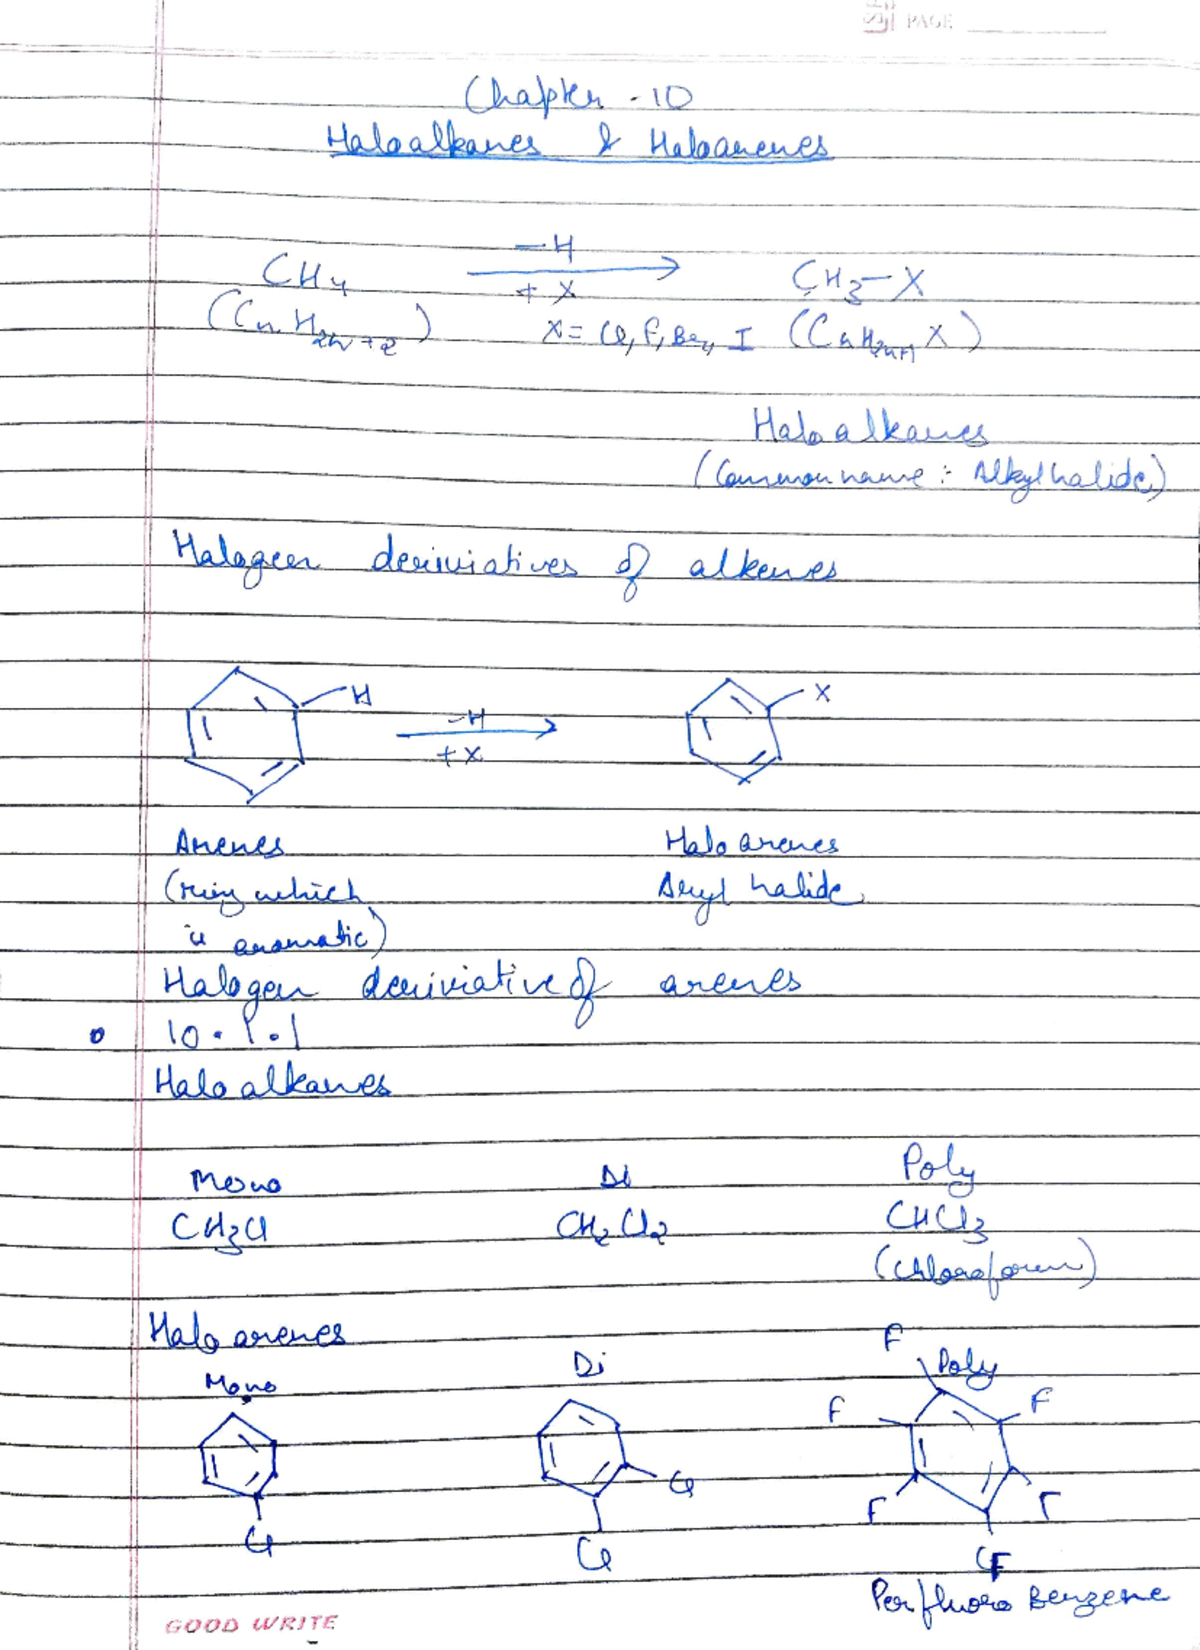 PAGE
Chapter - 10
Haloalkanes & Haloarenes
CH4 —H + X CH3—X
(CnH2n+2) X= Cl, F, Br, I (CnH2n+1 X)
Haloalkanes
(Common name :- Alkylhalide)
Halogen deriviatives of alkenes
H —H + X X
Arenes Haloarenes
(ring which Aryl halide
is aromatic)
Halogen deriviative of arenes
10.1.1
Haloalkanes
Mono Di Poly
CH3Cl CH2Cl2 CHCl3
(Chloroform)
Haloarenes
Mono Di Poly
F F F
Cl Cl F F
Cl F
Perfluoro Benzene
GOOD WRITE